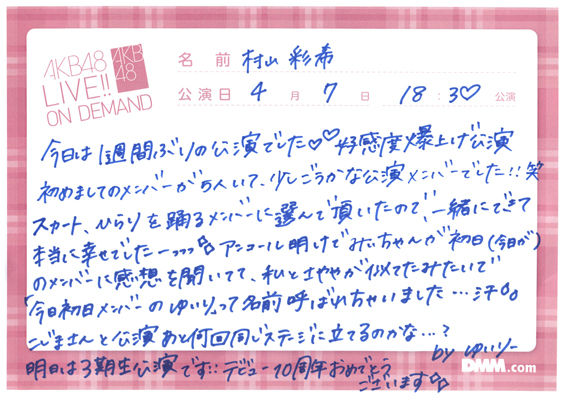 AKB48
LIVE!!
ON DEMAND
AKB
48
名前 村山彩希
公演日 4月7日 18:30 公演
今日は1週間ぶりの公演でした♡♡ #好感度爆上げ公演
初めましてのメンバーが5人いて、少しごうかな公演メンバーでした!!笑
スカート、ひらりを踊るメンバーに選んで頂いたので、一緒にできて
本当に幸せでしたーっっっ アンコール明けでみぃちゃんが初日(今日が)
のメンバーに感想を聞いてて、私と せややが似てたみたいで
「今日初日メンバーのゆいりって名前呼ばれちゃいました…汗
こじまさんと公演あと何回同じステージに立てるのかな…?
明日は3期生公演です!! デビュー10周年おめでとう
ございます
by ゆいりー
DMM.com